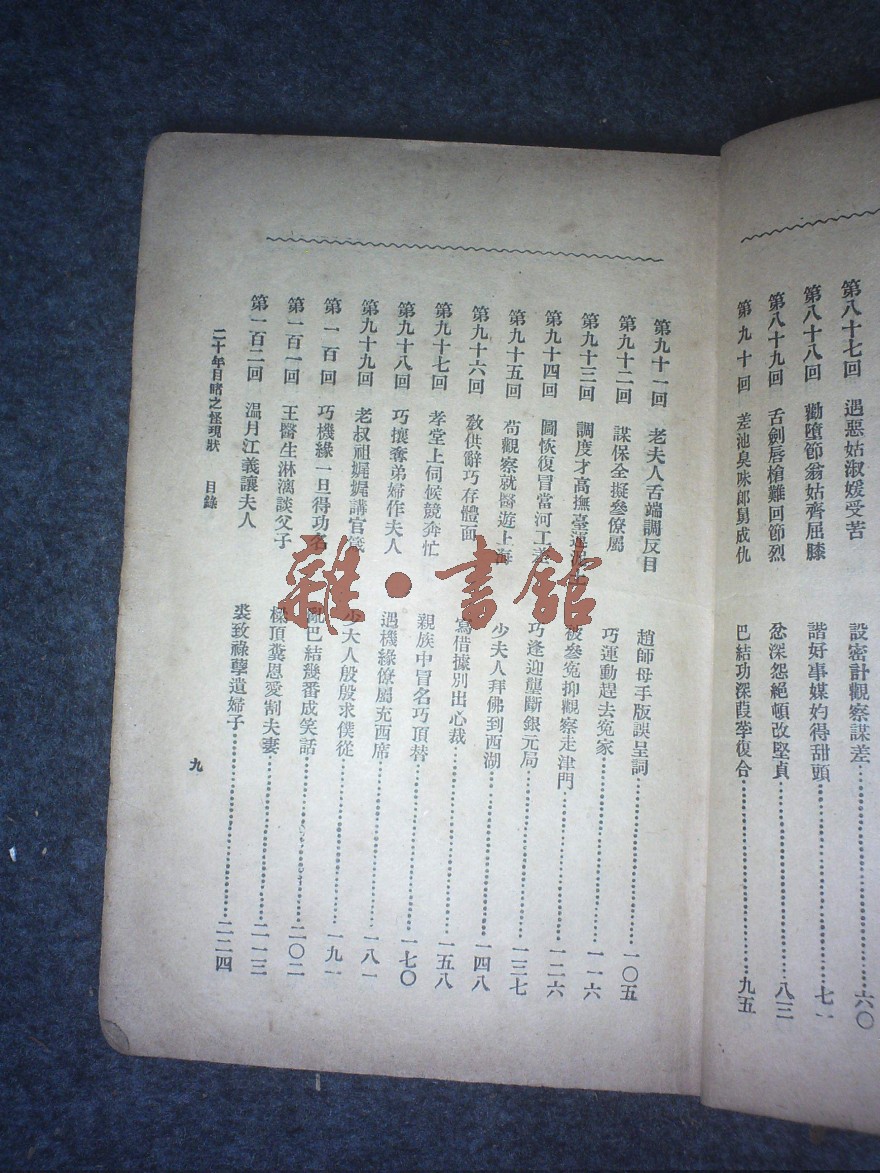 第八十七回　遇惡姑淑媛受苦　設密計觀察謀差……六〇
第八十八回　勸墮節翁姑齊屈膝　諧好事媒妁得甜頭……七一
第八十九回　舌劍唇槍難回節烈　忿深怨絕頓改堅貞……八三
第九十回　差池臭味郎舅成仇　巴結功深葭莩復合……九五
第九十一回　老夫人舌端調反目　趙師母手版誤呈詞……一〇五
第九十二回　謀保全擬參僚屬　巧運動趕去冤家……一一六
第九十三回　調度才高撫臺運泥土　被參冤抑觀察走津門……一二六
第九十四回　圖恢復冒當河工差　巧逢迎壟斷銀元局……一三七
第九十五回　苟觀察就醫遊上海　少夫人拜佛到西湖……一四八
第九十六回　教供辭巧存體面　寫借據別出心裁……一五八
第九十七回　孝堂上伺候競奔忙　親族中冒名巧頂替……一七〇
第九十八回　巧攘奪弟婦作夫人　遇機緣僚屬充西席……一八一
第九十九回　老叔祖娓娓講官箴　少大人殷殷求僕從……一九一
第一百回　巧機緣一旦得功名　亂巴結幾番成笑話……二〇二
第一百一回　王醫生淋漓談父子　梁頂糞恩愛割夫妻……二一三
第一百二回　溫月江義讓夫人　裘致祿孽遺婦子……二二四
二十年目睹之怪現狀　目錄
九
雜·書館